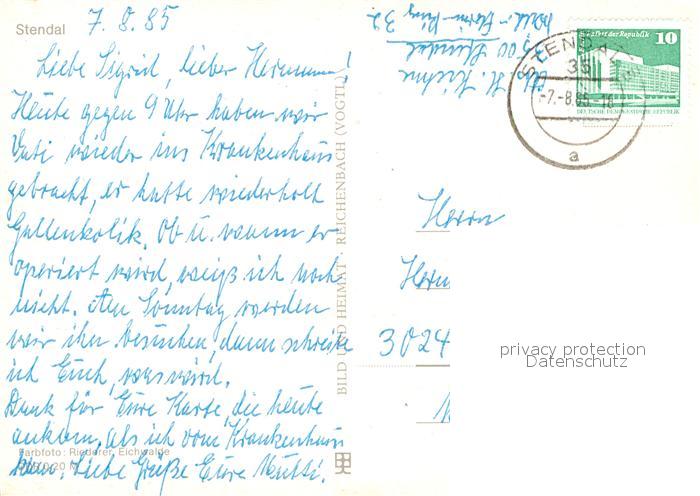 Stendal
7.8.85
Liebe Sigrid, lieber Hermann!
Heute gegen 9 Uhr haben wir
Vati wieder ins Krankenhaus
gebracht, er hatte wiederholt
Gallenkolik. Ob u. wann er
operiert wird, weiß ich noch
nicht. Am Sonntag werden
wir ihn besuchen, dann schreibe
ich Euch, was wird.
Dank für Eure Karte, die heute
ankam, als ich vom Krankenhaus
kam. Liebe Grüße Eure Mutti.
Farbfoto: Riederer, Eichwalde
0,20 M
BILD UND HEIMAT REICHENBACH (VOGTL)
35 00 Stendal
Palast der Republik
10
DEUTSCHE DEMOKRATISCHE REPUBLIK
STENDAL
35
-7.-8.85-18
a
Herrn
Herm
3024
privacy protection
Datenschutz